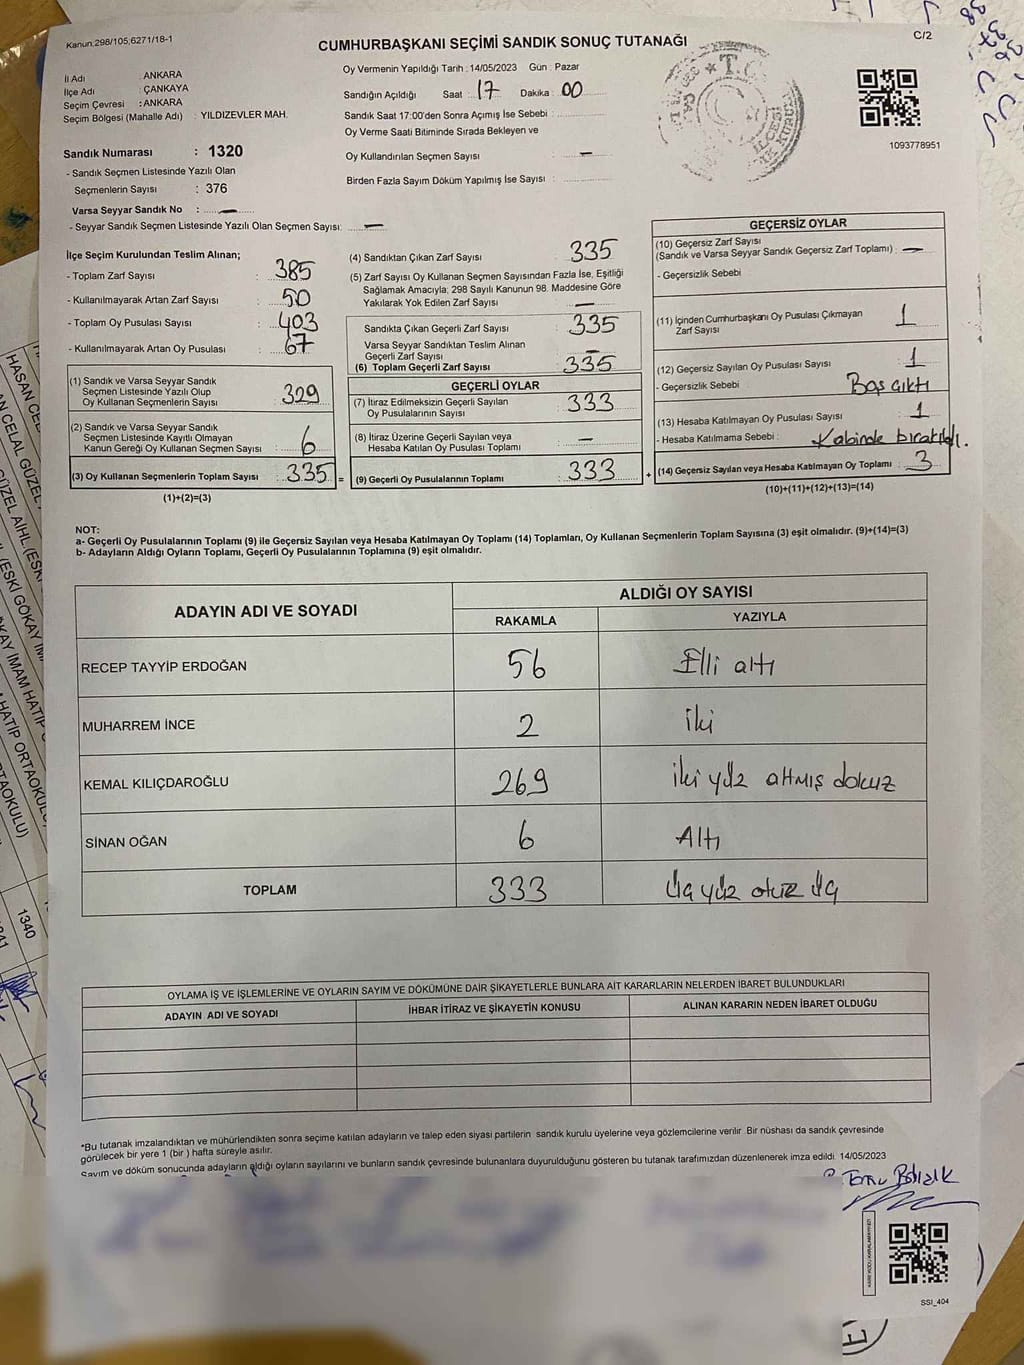 Kanun:298/105;6271/18-1
CUMHURBAŞKANI SEÇİMİ SANDIK SONUÇ TUTANAĞI
C/2
İl Adı : ANKARA
İlçe Adı : ÇANKAYA
Seçim Çevresi : ANKARA
Seçim Bölgesi (Mahalle Adı) : YILDIZEVLER MAH.
Sandık Numarası : 1320
- Sandık Seçmen Listesinde Yazılı Olan
Seçmenlerin Sayısı : 376
Varsa Seyyar Sandık No : —
- Seyyar Sandık Seçmen Listesinde Yazılı Olan Seçmen Sayısı: —
Oy Vermenin Yapıldığı Tarih : 14/05/2023 Gün : Pazar
Sandığın Açıldığı Saat : 17 Dakika : 00
Sandık Saat 17:00'den Sonra Açımış İse Sebebi :
Oy Verme Saati Bitiminde Sırada Bekleyen ve
Oy Kullandırılan Seçmen Sayısı : —
Birden Fazla Sayım Döküm Yapılmış İse Sayısı :
T.C.
1093778951
İlçe Seçim Kurulundan Teslim Alınan;
- Toplam Zarf Sayısı : 385
- Kullanılmayarak Artan Zarf Sayısı : 50
- Toplam Oy Pusulası Sayısı : 403
- Kullanılmayarak Artan Oy Pusulası : 67
(1) Sandık ve Varsa Seyyar Sandık
Seçmen Listesinde Yazılı Olup
Oy Kullanan Seçmenlerin Sayısı : 329
(2) Sandık ve Varsa Seyyar Sandık
Seçmen Listesinde Kayıtlı Olmayan
Kanun Gereği Oy Kullanan Seçmen Sayısı : 6
(3) Oy Kullanan Seçmenlerin Toplam Sayısı : 335 =
(1)+(2)=(3)
(4) Sandıktan Çıkan Zarf Sayısı : 335
(5) Zarf Sayısı Oy Kullanan Seçmen Sayısından Fazla İse, Eşitliği
Sağlamak Amacıyla; 298 Sayılı Kanunun 98. Maddesine Göre
Yakılarak Yok Edilen Zarf Sayısı : —
Sandıkta Çıkan Geçerli Zarf Sayısı : 335
Varsa Seyyar Sandıktan Teslim Alınan
Geçerli Zarf Sayısı : —
(6) Toplam Geçerli Zarf Sayısı : 335
GEÇERLİ OYLAR
(7) İtiraz Edilmeksizin Geçerli Sayılan
Oy Pusulalarının Sayısı : 333
(8) İtiraz Üzerine Geçerli Sayılan veya
Hesaba Katılan Oy Pusulası Toplamı : —
(9) Geçerli Oy Pusulalarının Toplamı : 333 +
GEÇERSİZ OYLAR
(10) Geçersiz Zarf Sayısı
(Sandık ve Varsa Seyyar Sandık Geçersiz Zarf Toplamı) : —
- Geçersizlik Sebebi
(11) İçinden Cumhurbaşkanı Oy Pusulası Çıkmayan
Zarf Sayısı : 1
(12) Geçersiz Sayılan Oy Pusulası Sayısı : 1
- Geçersizlik Sebebi : Boş çıktı
(13) Hesaba Katılmayan Oy Pusulası Sayısı : 1
- Hesaba Katılmama Sebebi : Kabinde bırakıldı.
(14) Geçersiz Sayılan veya Hesaba Katılmayan Oy Toplamı : 3
(10)+(11)+(12)+(13)=(14)
NOT:
a- Geçerli Oy Pusulalarının Toplamı (9) ile Geçersiz Sayılan veya Hesaba Katılmayan Oy Toplamı (14) Toplamları, Oy Kullanan Seçmenlerin Toplam Sayısına (3) eşit olmalıdır. (9)+(14)=(3)
b- Adayların Aldığı Oyların Toplamı, Geçerli Oy Pusulalarının Toplamına (9) eşit olmalıdır.
ADAYIN ADI VE SOYADI
ALDIĞI OY SAYISI
RAKAMLA YAZIYLA
RECEP TAYYİP ERDOĞAN 56 Elli altı
MUHARREM İNCE 2 iki
KEMAL KILIÇDAROĞLU 269 iki yüz altmış dokuz
SİNAN OĞAN 6 Altı
TOPLAM 333 Üç yüz otuz üç
OYLAMA İŞ VE İŞLEMLERİNE VE OYLARIN SAYIM VE DÖKÜMÜNE DAİR ŞİKAYETLERLE BUNLARA AİT KARARLARIN NELERDEN İBARET BULUNDUKLARI
ADAYIN ADI VE SOYADI İHBAR İTİRAZ VE ŞİKAYETİN KONUSU ALINAN KARARIN NEDEN İBARET OLDUĞU
*Bu tutanak imzalandıktan ve mühürlendikten sonra seçime katılan adayların ve talep eden siyasi partilerin sandık kurulu üyelerine veya gözlemcilerine verilir. Bir nüshası da sandık çevresinde
görülecek bir yere 1 (bir) hafta süreyle asılır.
Sayım ve döküm sonucunda adayların aldığı oyların sayılarını ve bunların sandık çevresinde bulunanlara duyurulduğunu gösteren bu tutanak tarafımızdan düzenlenerek imza edildi. 14/05/2023
SSI_404
1340